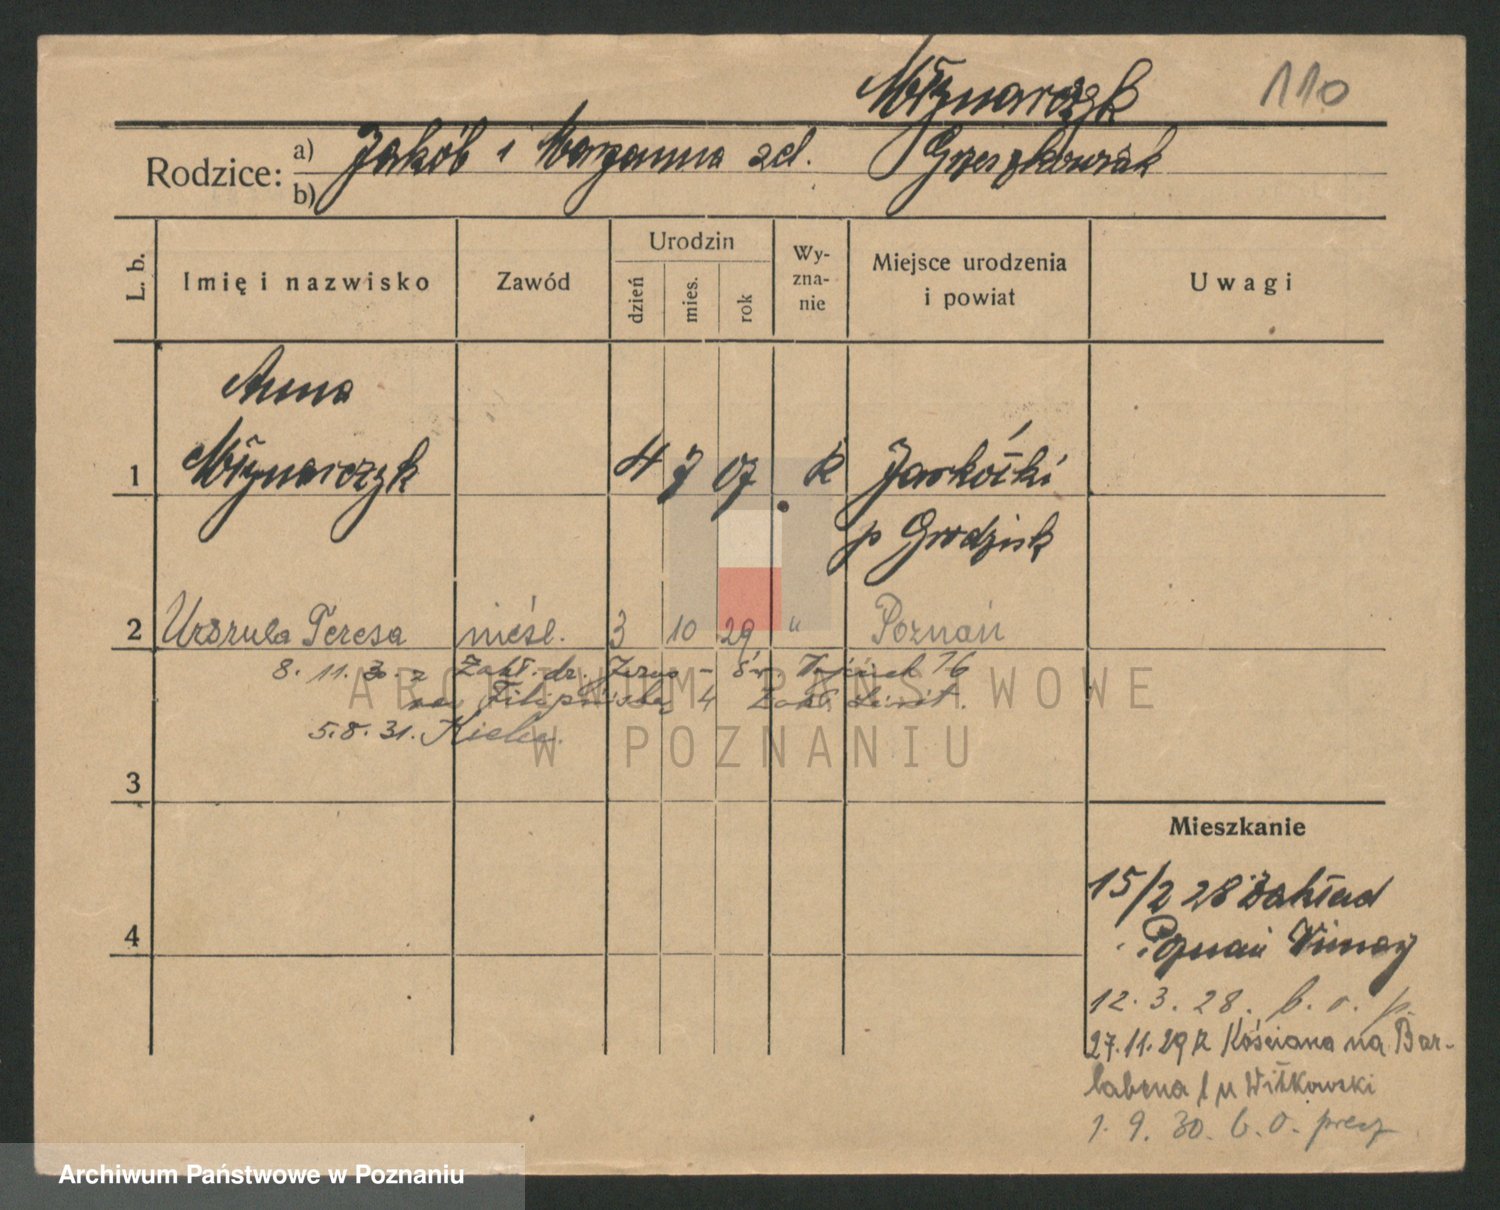 Młynarczyk 110
Rodzice: a) Jakób i Maryanna zd. Grzeszkowiak
b)
L. b. Imię i nazwisko Zawód Urodzin dzień mies. rok Wy-zna-nie Miejsce urodzenia i powiat Uwagi
Anna
1 Młynarczyk 4 7 07. k Jarkóśki
p Grodzisk
2 Urszula Teresa nieśl. 3 10 29 " Poznań
8. 11. 30. z Zakł. dr. Jerus - św. Wojciech 16
na Filipińską 4 Zakł.
5.8.31. Kielce.
3
ARCHIWUM PAŃSTWOWE
W POZNANIU
Mieszkanie
15/2 28 Zakład
4
Poznań
12. 3. 28. b. o. p.
27.11.29 z Kościana na Bar-
labena 1 u Witkowski
1. 9. 30. b. o. prez
Archiwum Państwowe w Poznaniu